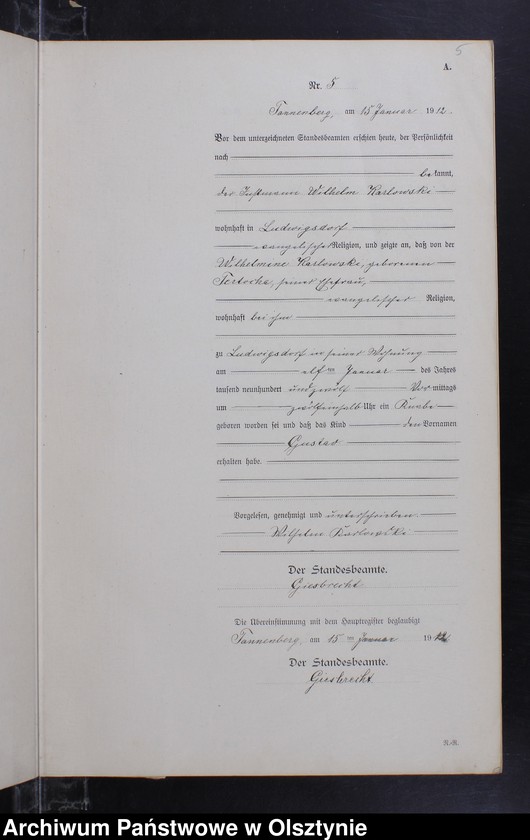 5
A.
Nr. 5
Tannenberg, am 15 Januar 1912.
Vor dem unterzeichneten Standesbeamten erschien heute, der Persönlichkeit
nach
bekannt,
der Instmann Wilhelm Karlowski
wohnhaft in Ludwigsdorf
evangelischer Religion, und zeigte an, daß von der
Wilhelmine Karlowski, geborenen
seiner Ehefrau,
evangelischer Religion,
wohnhaft bei ihm
zu Ludwigsdorf in seiner Wohnung
am elften Januar des Jahres
tausend neunhundert undzwölf Vormittags
um zwölfeinhalb Uhr ein Knabe
geboren worden sei und daß das Kind den Vornamen
Gustav
erhalten habe.
Vorgelesen, genehmigt und unterschrieben
Wilhelm Karlowski
Der Standesbeamte.
Giesbrecht
Die Übereinstimmung mit dem Hauptregister beglaubigt
Tannenberg, am 15ten Januar 1912
Der Standesbeamte.
Giesbrecht
Archiwum Państwowe w Olsztynie